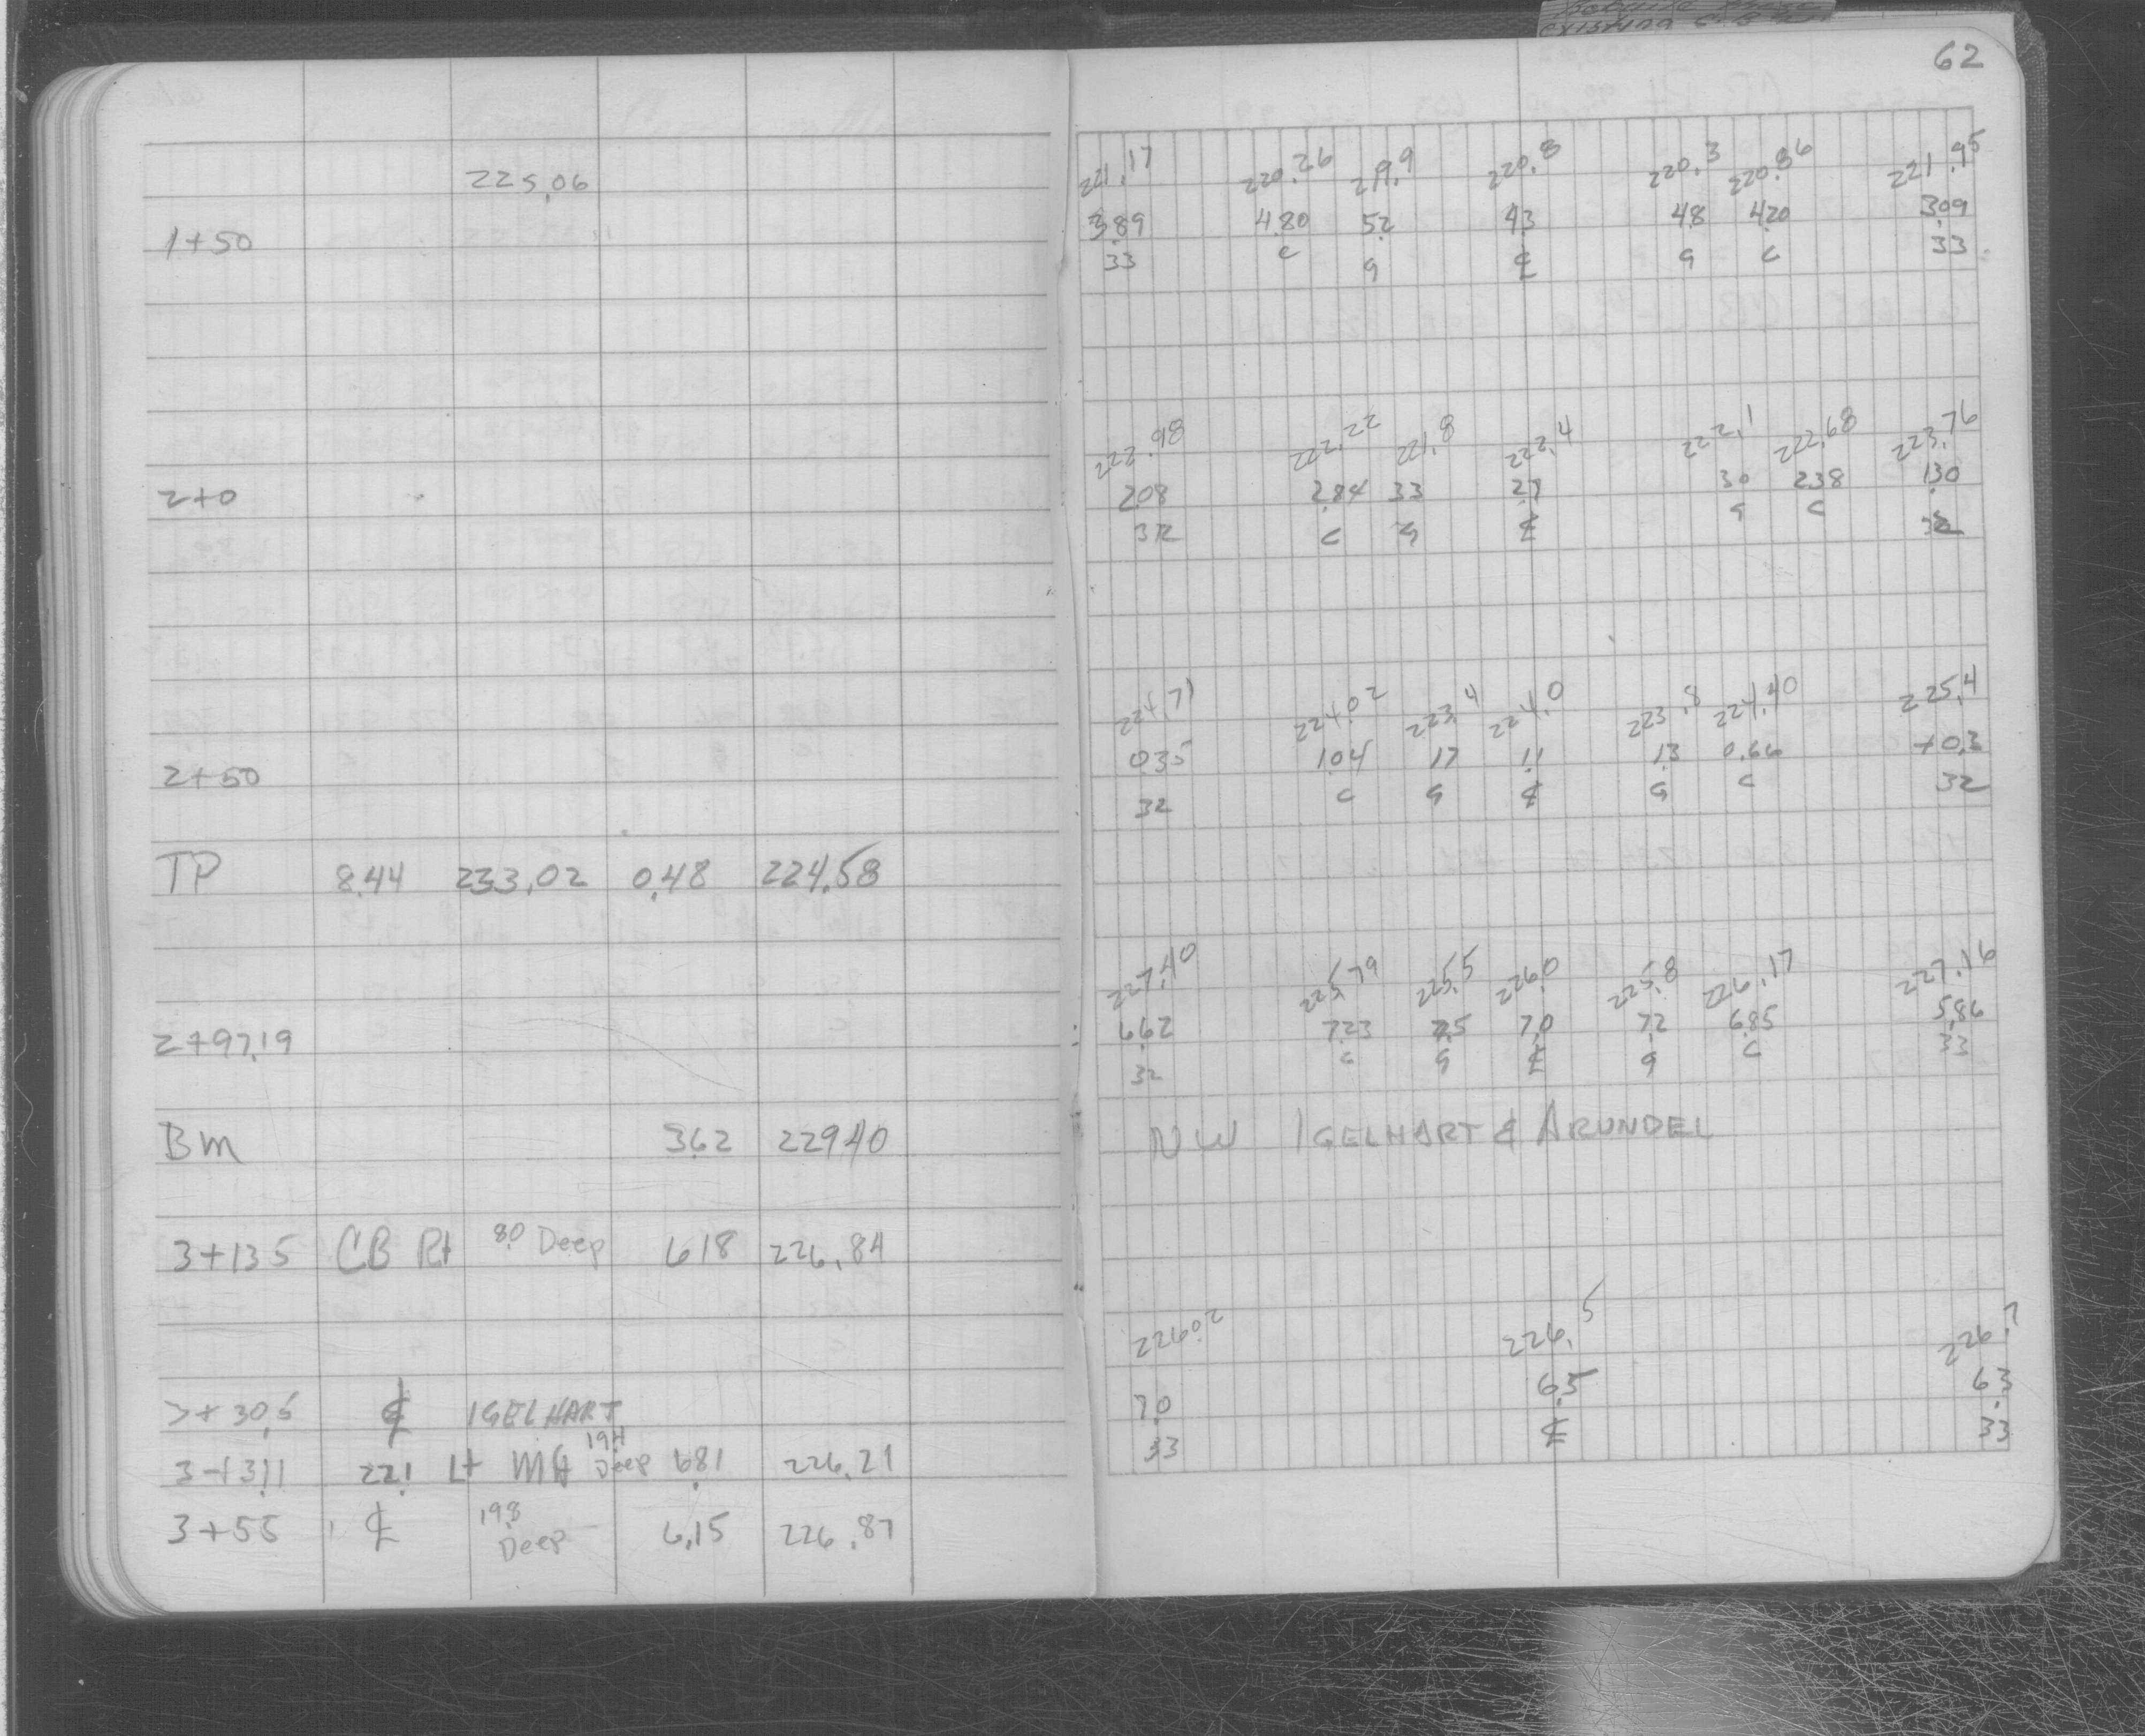 existing C.B.
62
225.06
1+50
221.17 220.26 219.9 220.8 220.3 220.86 221.95
3.89 4.80 5.2 4.3 4.8 4.20 3.09
33 C G ℄ G C 33
2+0
222.98 222.22 221.8 222.4 222.1 222.68 223.76
2.08 2.84 3.3 2.7 3.0 2.38 1.30
32 C G ℄ G C 32
2+50
224.71 224.02 223.4 224.0 223.8 224.40 225.4
0.35 1.04 1.7 1.1 1.3 0.66 +0.3
32 C G ℄ G C 32
TP 8.44 233.02 0.48 224.58
2+97.19
227.40 225.79 225.5 226.0 225.8 226.17 227.16
6.62 7.23 7.5 7.0 7.2 6.85 5.86
32 C G ℄ G C 33
BM 3.62 229.40 NW IGELHART & ARUNDEL
3+135 CB Rt 8.0 Deep 6.18 226.84
226.02 226.5 226.7
7.0 6.5 6.3
33 ℄ 33
3+30.5 ℄ IGELHART
3+31.1 22.1 Lt MH 19.4 Deep 6.81 226.21
3+55 ℄ 19.8 Deep 6.15 226.87